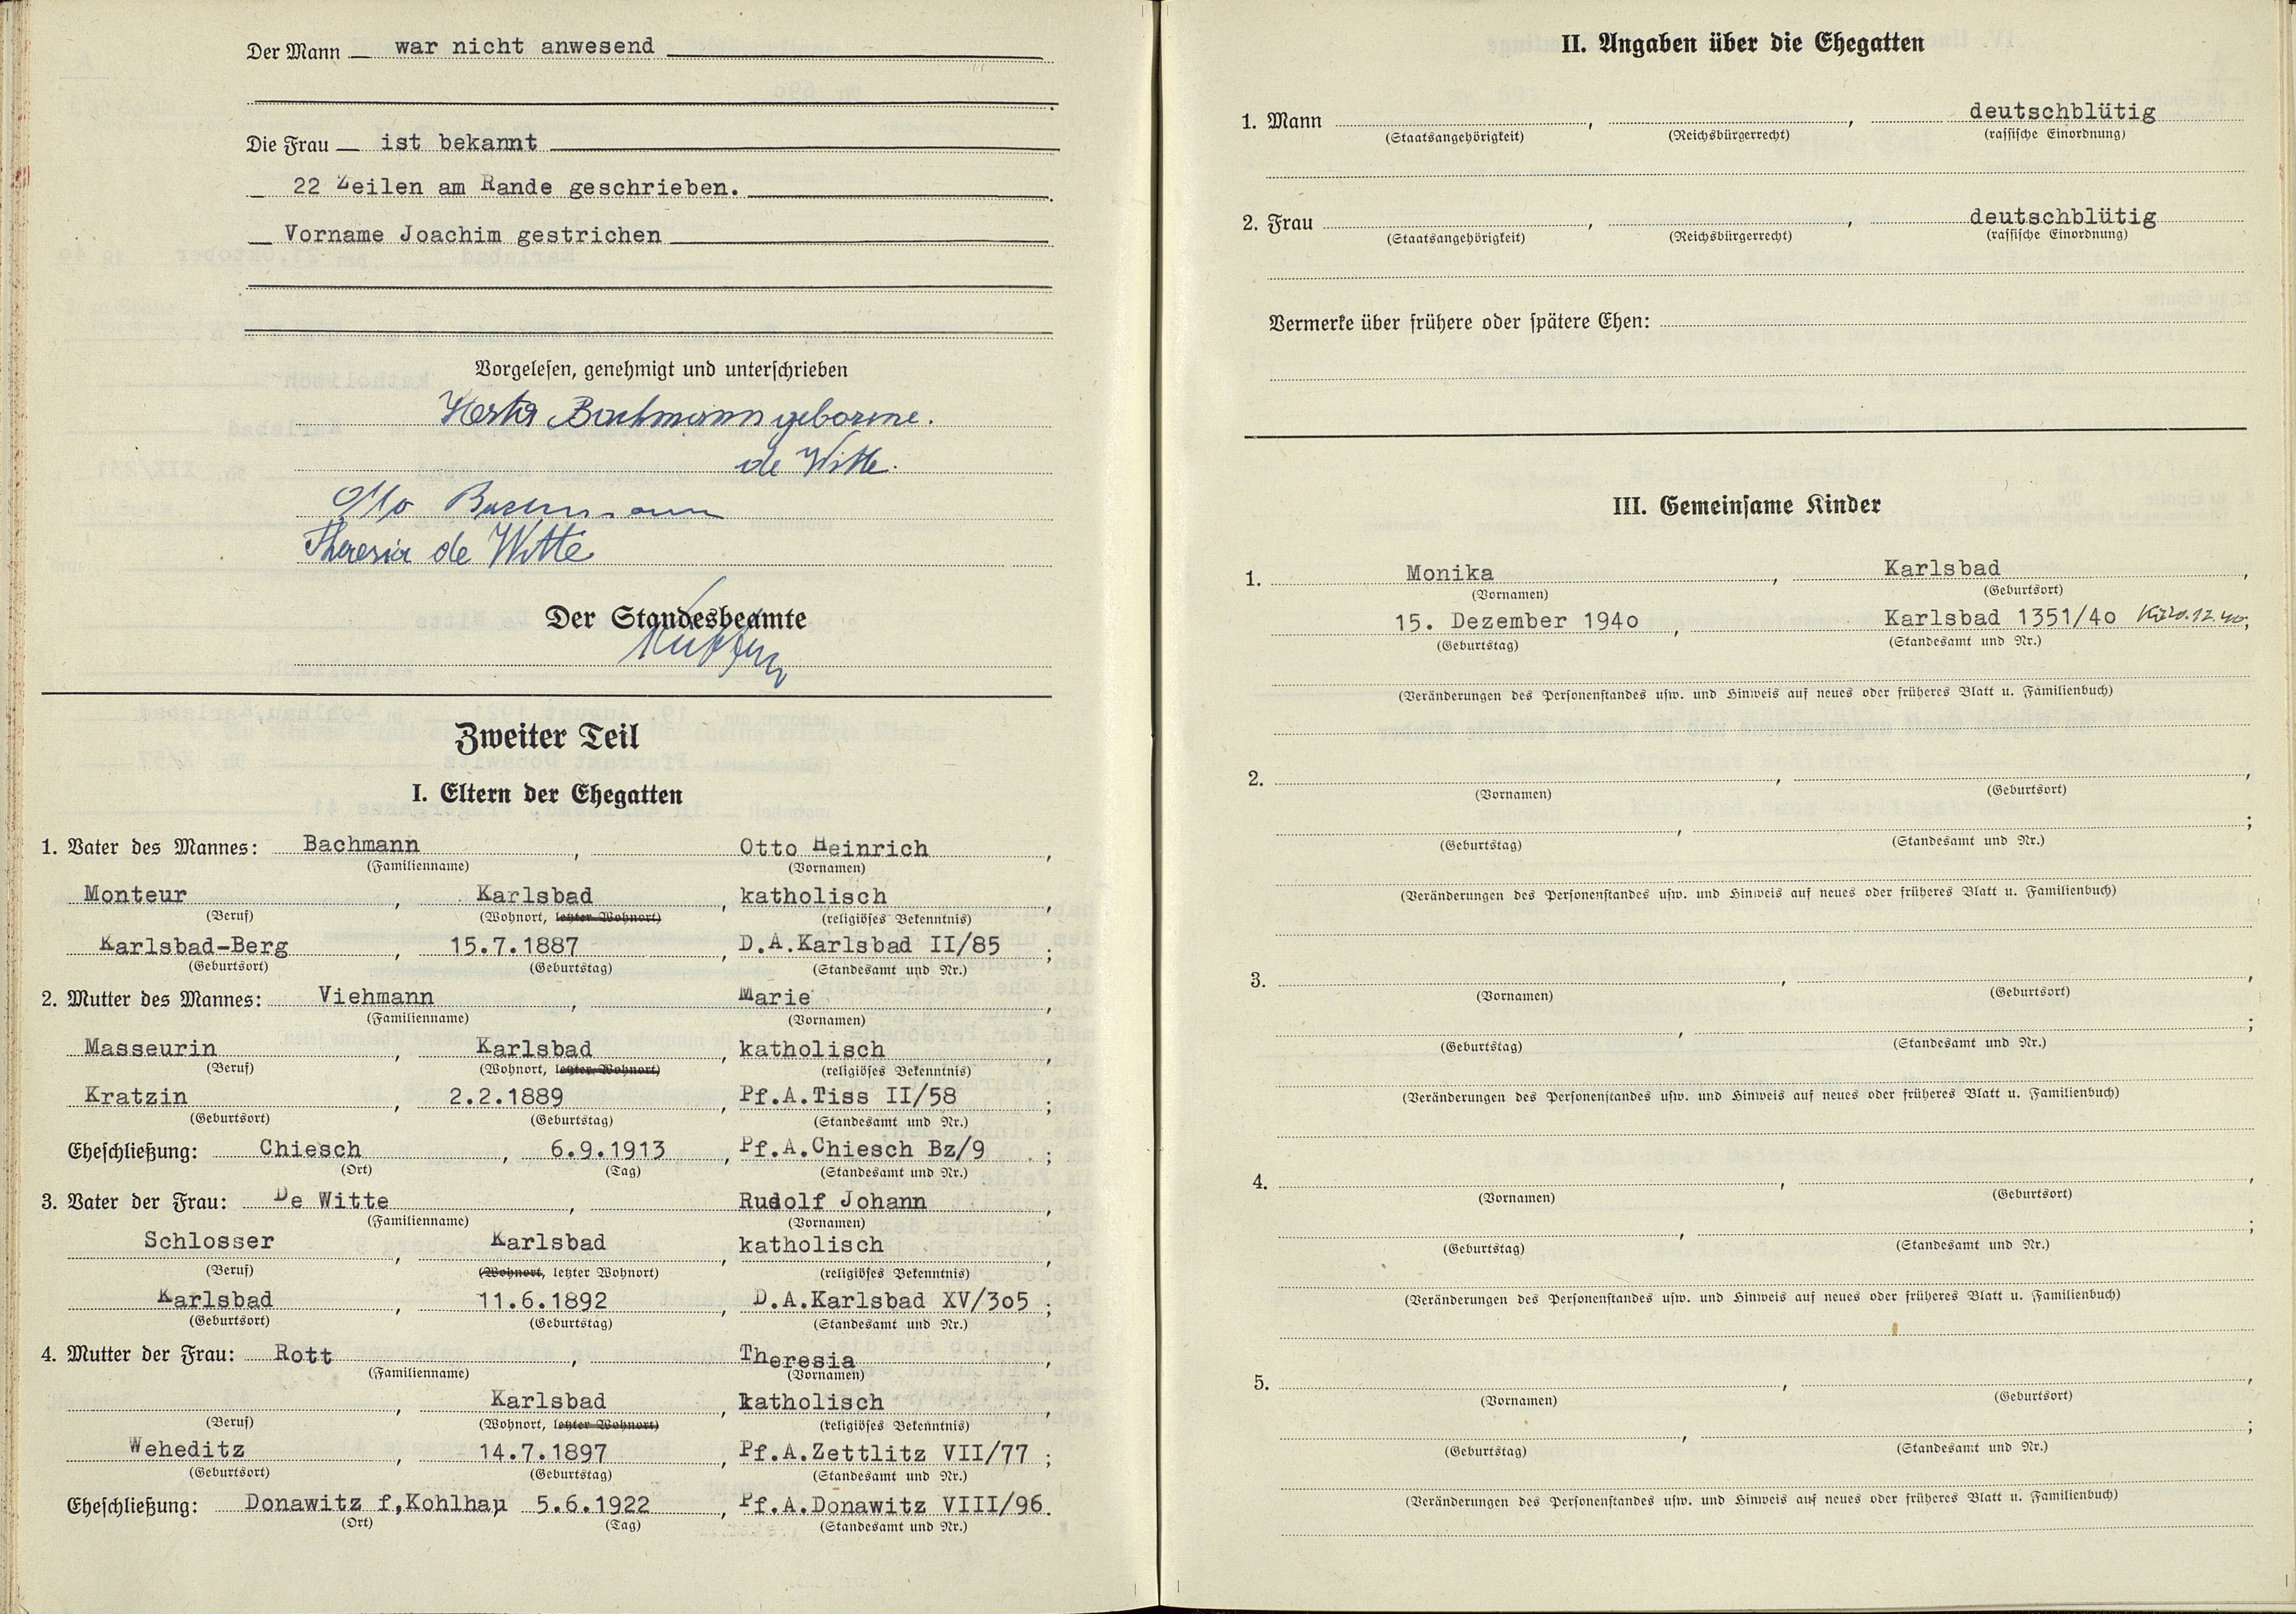 Der Mann war nicht anwesend
Die Frau ist bekannt
22 Zeilen am Rande geschrieben.
Vorname Joachim gestrichen
Vorgelesen, genehmigt und unterschrieben
Herta Bachmann geborene.
de Witte.
Otto Bachmann
Theresia de Witte
Der Standesbeamte
Zweiter Teil
I. Eltern der Ehegatten
1. Vater des Mannes: Bachmann, Otto Heinrich,
(Familienname) (Vornamen)
Monteur, Karlsbad, katholisch,
(Beruf) (Wohnort, letzter Wohnort) (religiöses Bekenntnis)
Karlsbad-Berg, 15.7.1887, D.A.Karlsbad II/85;
(Geburtsort) (Geburtstag) (Standesamt und Nr.)
2. Mutter des Mannes: Viehmann, Marie,
(Familienname) (Vornamen)
Masseurin, Karlsbad, katholisch,
(Beruf) (Wohnort, letzter Wohnort) (religiöses Bekenntnis)
Kratzin, 2.2.1889, Pf.A.Tiss II/58;
(Geburtsort) (Geburtstag) (Standesamt und Nr.)
Eheschließung: Chiesch, 6.9.1913, Pf.A.Chiesch Bz/9;
(Ort) (Tag) (Standesamt und Nr.)
3. Vater der Frau: De Witte, Rudolf Johann,
(Familienname) (Vornamen)
Schlosser, Karlsbad, katholisch,
(Beruf) (Wohnort, letzter Wohnort) (religiöses Bekenntnis)
Karlsbad, 11.6.1892, D.A.Karlsbad XV/3o5;
(Geburtsort) (Geburtstag) (Standesamt und Nr.)
4. Mutter der Frau: Rott, Theresia,
(Familienname) (Vornamen)
, Karlsbad, katholisch,
(Beruf) (Wohnort, letzter Wohnort) (religiöses Bekenntnis)
Weheditz, 14.7.1897, Pf.A.Zettlitz VII/77;
(Geburtsort) (Geburtstag) (Standesamt und Nr.)
Eheschließung: Donawitz f,Kohlhau, 5.6.1922, Pf.A.Donawitz VIII/96.
(Ort) (Tag) (Standesamt und Nr.)
II. Angaben über die Ehegatten
1. Mann , , deutschblütig
(Staatsangehörigkeit) (Reichsbürgerrecht) (rassische Einordnung)
2. Frau , , deutschblütig
(Staatsangehörigkeit) (Reichsbürgerrecht) (rassische Einordnung)
Vermerke über frühere oder spätere Ehen:
III. Gemeinsame Kinder
1. Monika, Karlsbad,
(Vornamen) (Geburtsort)
15. Dezember 194o, Karlsbad 1351/4o
(Geburtstag) (Standesamt und Nr.)
(Veränderungen des Personenstandes usw. und Hinweis auf neues oder früheres Blatt u. Familienbuch)
2. , ,
(Vornamen) (Geburtsort)
, ;
(Geburtstag) (Standesamt und Nr.)
(Veränderungen des Personenstandes usw. und Hinweis auf neues oder früheres Blatt u. Familienbuch)
3. , ,
(Vornamen) (Geburtsort)
, ;
(Geburtstag) (Standesamt und Nr.)
(Veränderungen des Personenstandes usw. und Hinweis auf neues oder früheres Blatt u. Familienbuch)
4. , ,
(Vornamen) (Geburtsort)
, ;
(Geburtstag) (Standesamt und Nr.)
(Veränderungen des Personenstandes usw. und Hinweis auf neues oder früheres Blatt u. Familienbuch)
5. , ,
(Vornamen) (Geburtsort)
, ;
(Geburtstag) (Standesamt und Nr.)
(Veränderungen des Personenstandes usw. und Hinweis auf neues oder früheres Blatt u. Familienbuch)